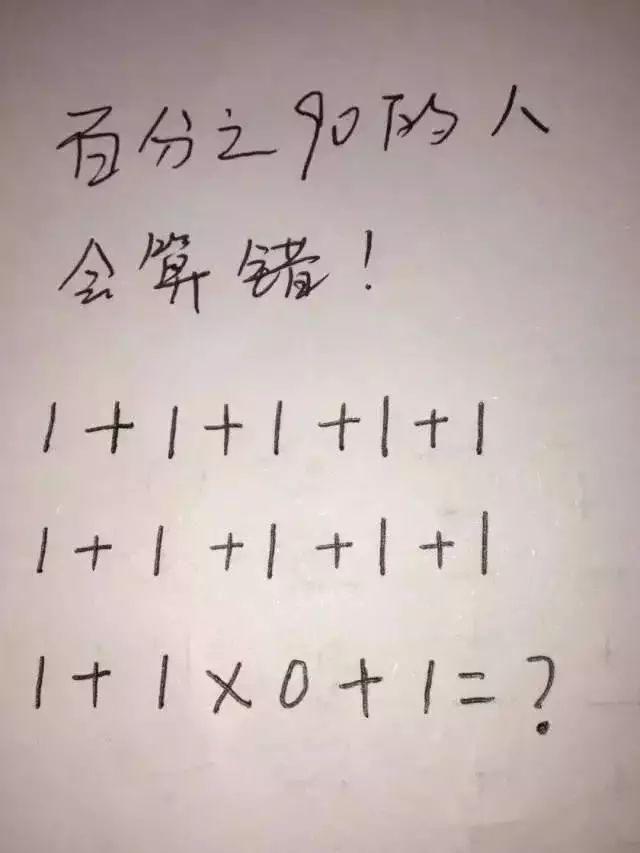 百分之90的人
会算错!
1+1+1+1+1
1+1+1+1+1
1+1×0+1=?